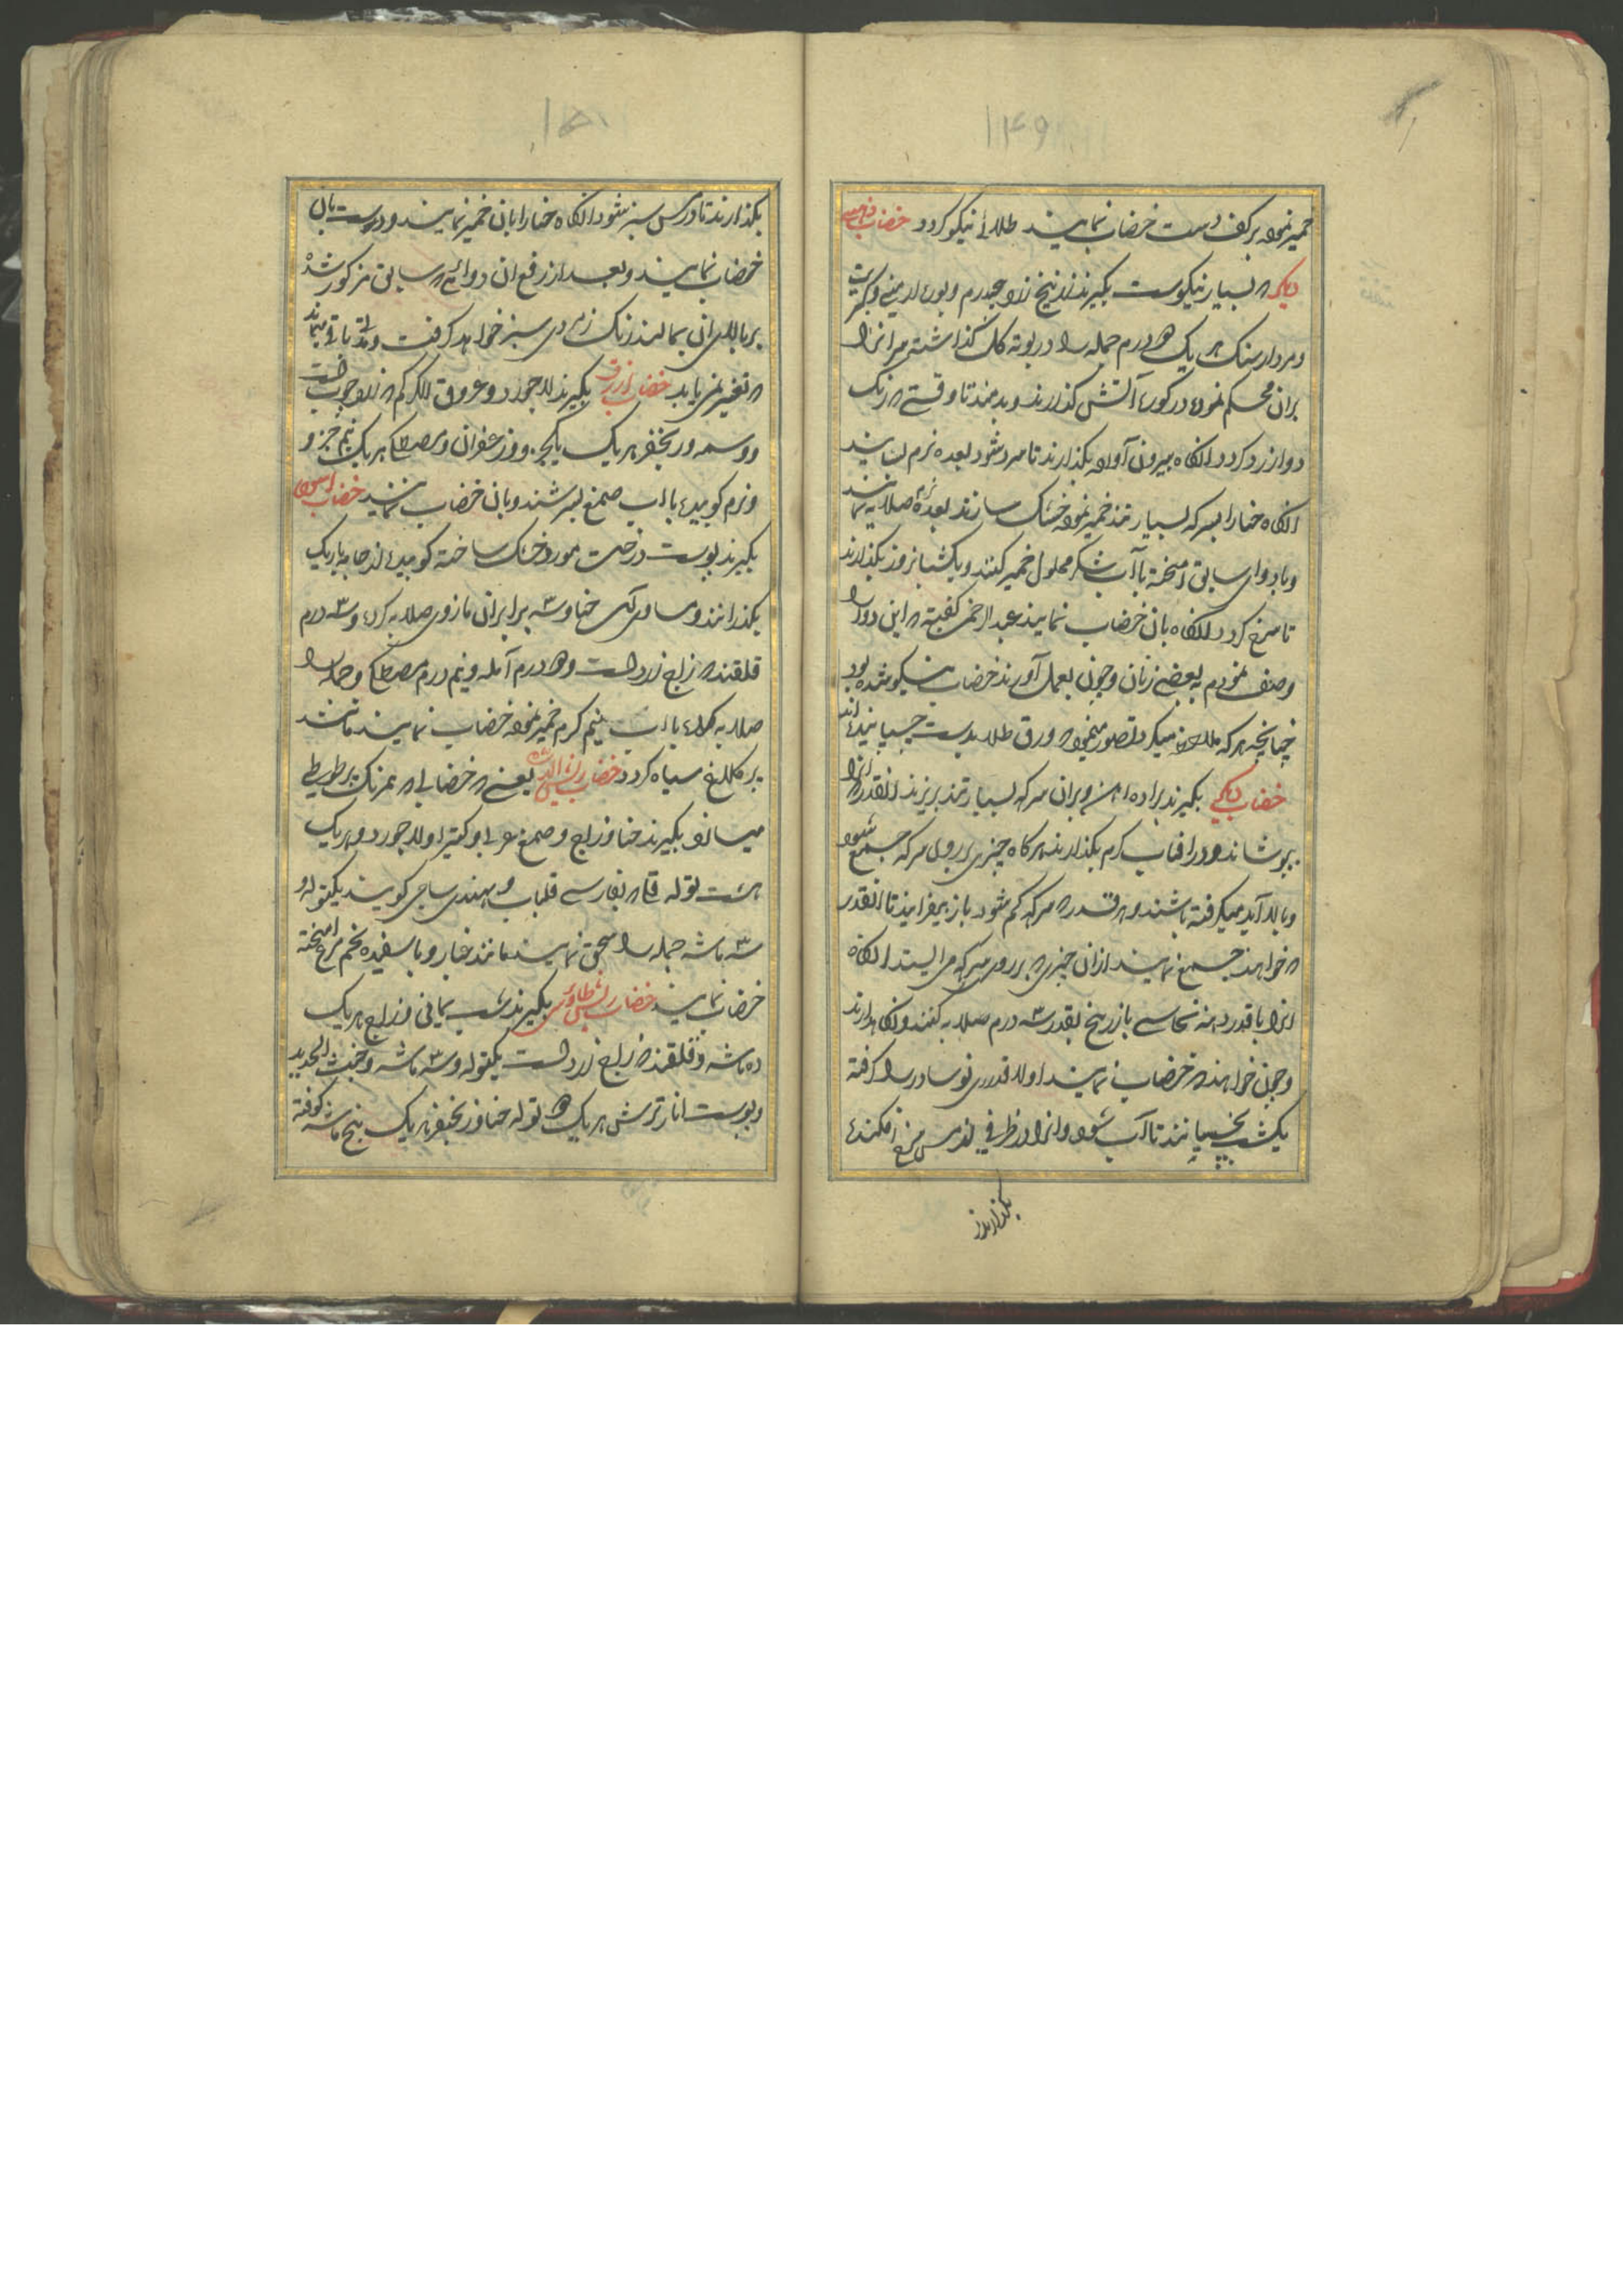 ۱۴۹
خمیر نموده بر کف دست خضاب نمایند طلائی نیکو کردد خضاب
دیکر که بسیار نیکوست بکیرند زرنیخ زرد چهدرم و بوره ارمنی و کبریت
و مردارسنک هر یک درم جمله را در بوته کل کذاشته سر انرا
بران محکم نموده در کوره آتش کذارند و بدمند تا وقتی که رنک
دوا زرد کردد انکاه بیرون آورده بکذارند تا سرد شود بعده نرم سایند
انکاه حنا را بسرکه بسیار تند خمیر نموده خشک سازند بعده صلایه نمایند
و با دوای سابق امیخته با آب شکر محلول خمیر کنند و یکشبانروز بکذارند
تا سرخ کردد انکاه بان خضاب نمایند عبد الرحمن کفته که این دوا را
وصف نمودم به بعضی زنان و چون بعمل آوردند خضاب نیکو شده بود
چنانچه هر که ملاحظه میکرد تصور مینمود که ورق طلا بدست چسپانیده اند
خضاب دیکر بکیرند براده اهن و بران سرکه بسیار تند بریزند انقدر که انرا
بپوشاند و در افتاب کرم بکذارند هر کاه چیزی بر روی سرکه جمع شود
و بالا آید میکرفته باشند و هر قدر که سرکه کم شود باز بیفزایند تا انقدر
که خواهند جمع نمایند ازان چیزی که بر روی سرکه می ایستد انکاه
انرا با قدر دهنه نحاسی با زرنیخ بقدر سه درم صلایه کنند و نکاهدارند
و چون خواهند که خضاب نمایند اولا قدری نوسادر را کرفته
یکشب بخیسانند تا آب شود و انرا در ظرفی از مس سرخ افکنده
بکذارند
۱۵۰
بکذارند تا در مس سبز شود انکاه حنا را بان خمیر نمایند و دست بان
خضاب نمایند و بعد از رفع ان دوائی که سابق مذکور شده
بر بالای ان بمالند رنک زمردی سبز خواهد کرفت و مدتها باقی میماند
که تغییر نمی یابد خضاب ازرق بکیرند لاجورد و عروق الکرکم که زرد چوب است
و وسمه و ریخفر هر یک یکجزو و زعفران و مصطکی هر یک نیم جزو
و نرم کوبیده با آب صمغ بسرشند و بان خضاب نمایند خضاب اسود
بکیرند پوست درخت مورد خشک ساخته کوبیده از جامه باریک
بکذرانند و مساوی آن حنا و سه برابر ان مازوی صلایه کرده و سه درم
قلقند که زاج زرد است و درم آمله و نیم درم مصطکی و جمله را
صلایه کرده با آب نیم کرم خمیر نموده خضاب نمایند مانند
پر کلاغ سیاه کردد خضاب یعنی خضابی که همرنک پر طوطی
میسازد بکیرند حنا و زاج و صمغ عربی و کتیرا و لاجورد و هر یک
هشت توله قلی که بفارسی قلیاب و بهندی ساجی کویند یکتوله و
سه ماشه جمله را سحق نمایند مانند غبار و با سفیده تخم مرغ امیخته
خضاب نمایند خضاب طاوسی بکیرند شب یمانی و زاج هر یک
ده ماشه و قلقند که زاج زرد است یکتوله و سه ماشه و خبث الحدید
و پوست انار ترش هر یک توله حنا و زنجفر هر یک پنج ماشه کوفته